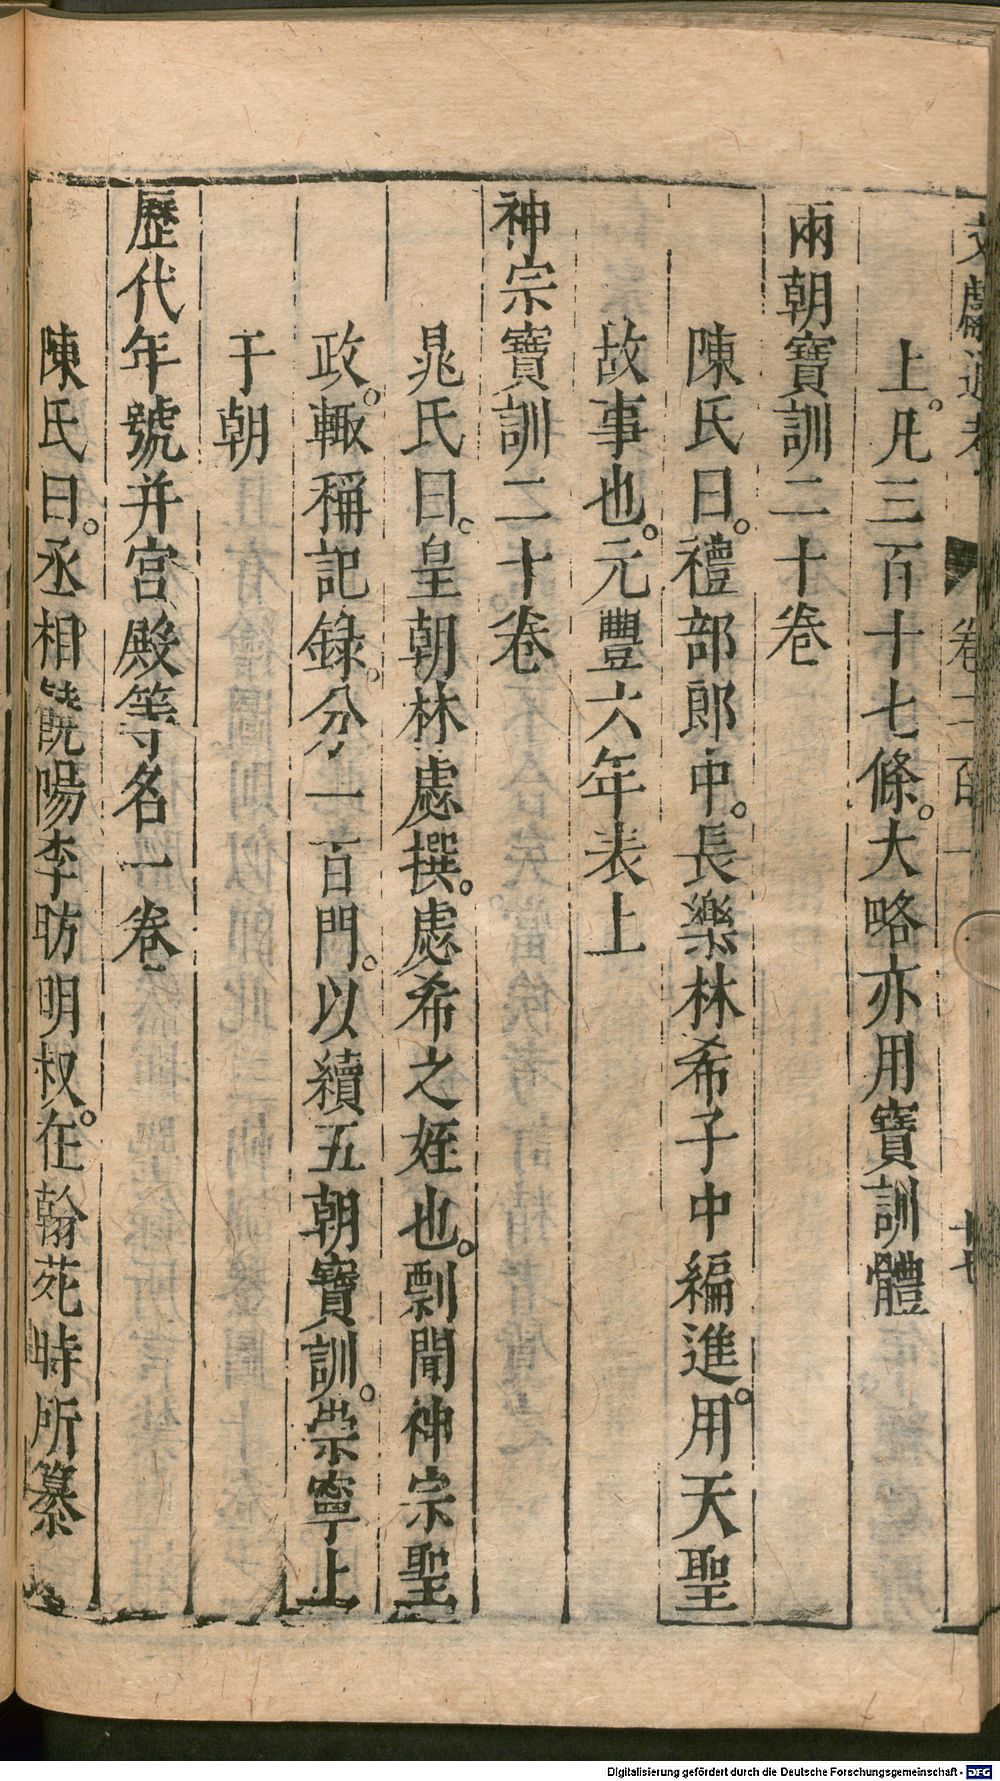 文獻通考 卷二百一 十七
上。凡三百十七條。大略亦用寶訓體
兩朝寶訓二十卷
陳氏曰。禮部郎中。長樂林希子中編進。用天聖
故事也。元豐六年表上
神宗寶訓二十卷
晁氏曰。皇朝林慮撰。慮希之姪也。剽聞神宗聖
政。輙稱記錄。分一百門。以續五朝寶訓。崇寧上
于朝
歷代年號并宮殿等名一卷
陳氏曰。丞相饒陽李昉明叔。在翰苑時所纂
Digitalisierung gefördert durch die Deutsche Forschungsgemeinschaft - DFG